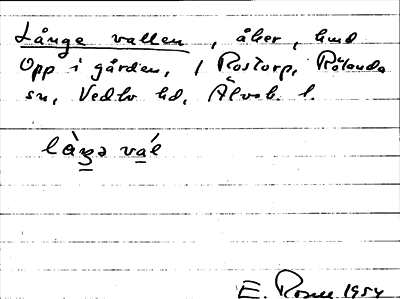 Långe vallen, åker, hmd
Opp i gården, / Rostorp, Rölanda
sn, Vedbo hd, Älvsb. l.
làŋə vál
E. Rosell 1954